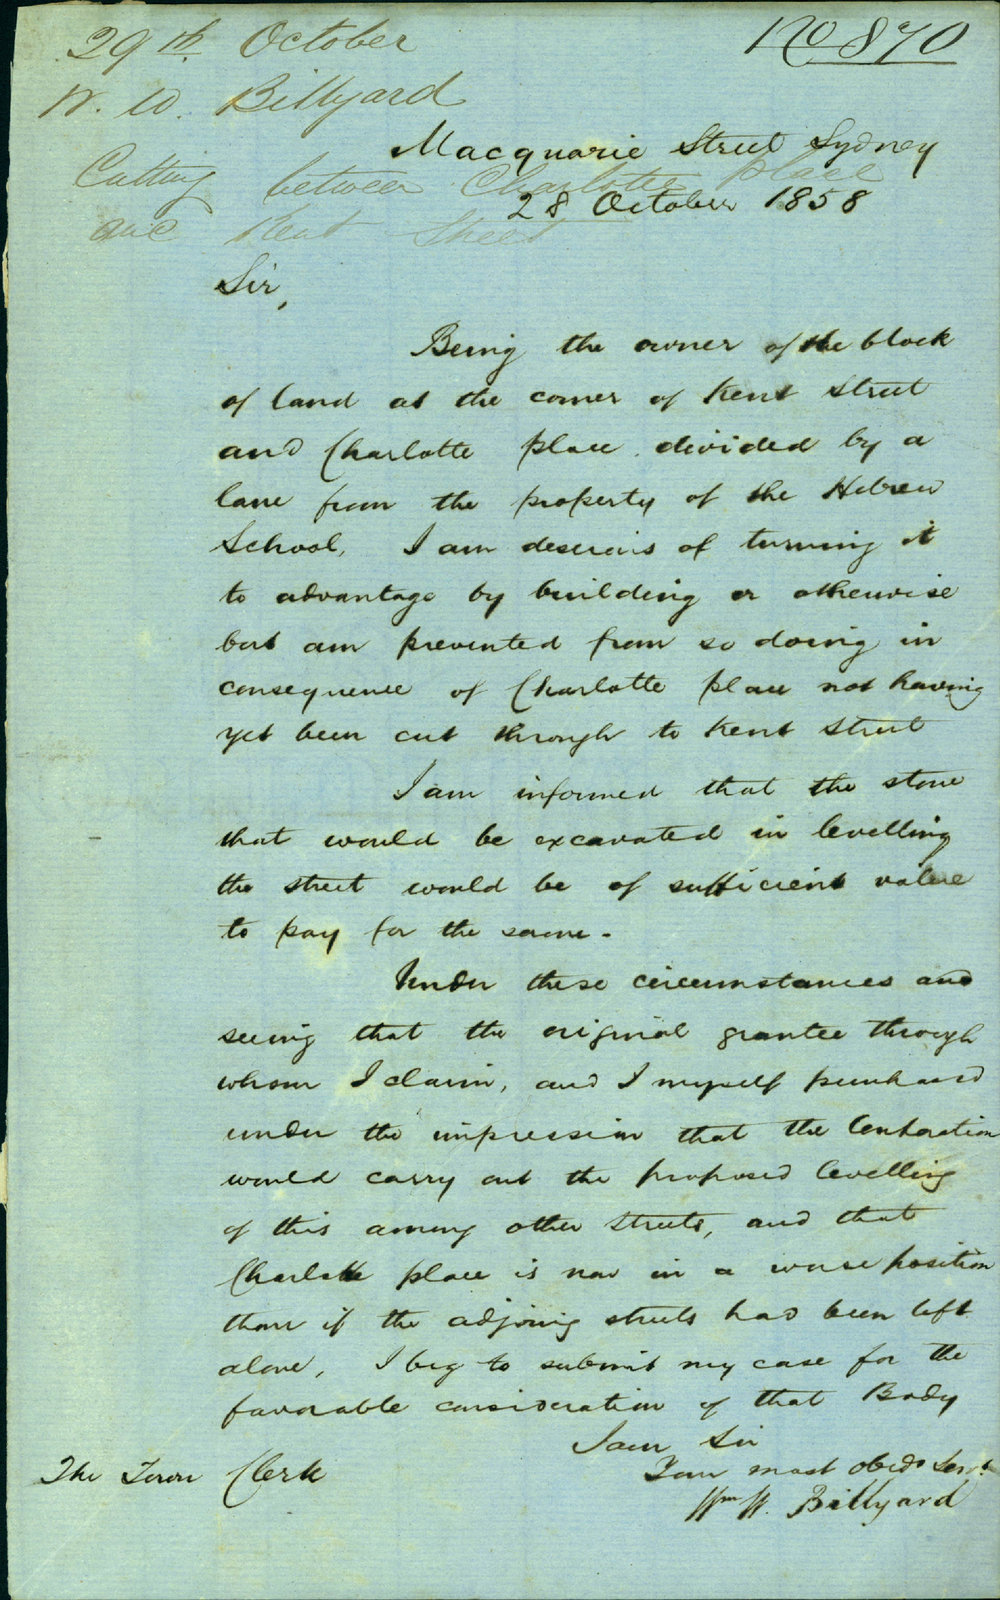 29th October
No 870
W. W. Billyard
Macquarie Street Sydney
Cutting between Charlotte place
28 October 1858
and Kent Street
Sir,
Being the owner of the block
of land at the corner of Kent Street
and Charlotte place divided by a
lane from the property of the Hebrew
School, I am deserous of turning it
to advantage by building or otherwise
but am prevented from so doing in
consequence of Charlotte place not having
yet been cut through to Kent Street
I am informed that the stone
that would be excavated in levelling
the street would be of sufficient value
to pay for the same -
Under these circumstances and
seeing that the original grantee through
whom I claim, and I myself purchased
under the impression that the Corporation
would carry out the proposed levelling
of this among other streets, and that
Charlotte place is now in a worse position
than if the adjoing streets had been left
alone, I beg to submit my case for the
favorable consideration of that Body
I am Sir
Your most obedt Servt
The Town Clerk
Wm W. Billyard